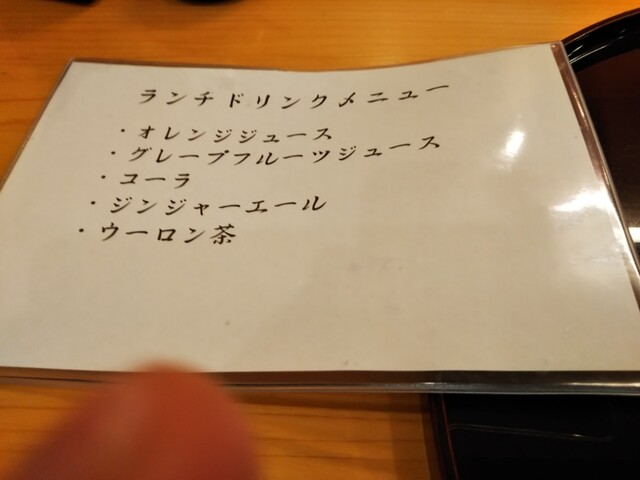 ランチドリンクメニュー
・オレンジジュース
・グレープフルーツジュース
・コーラ
・ジンジャーエール
・ウーロン茶